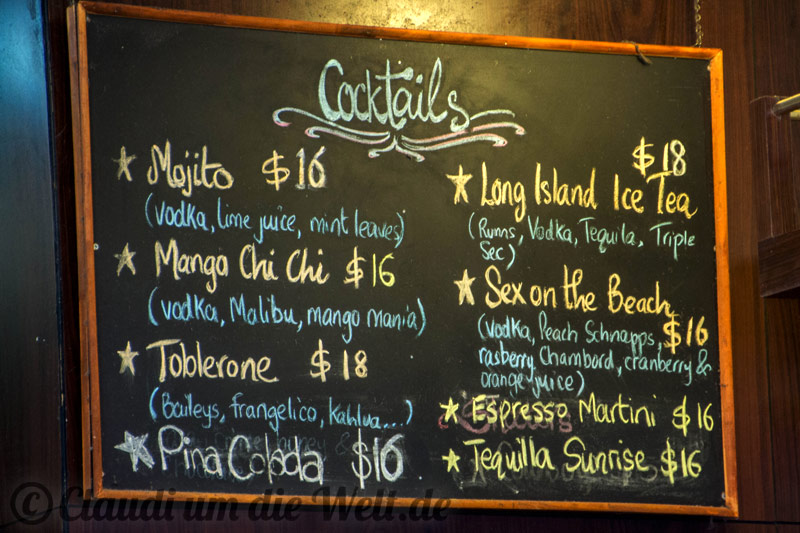 Cocktails
Mojito $16
(vodka, lime juice, mint leaves)
Mango Chi Chi $16
(vodka, Malibu, mango mania)
Toblerone $18
(Baileys, frangelico, kahlua...)
Pina Colada $16
$18
Long Island Ice Tea
(Rums, Vodka, Tequila, Triple
Sec)
Sex on the Beach
(vodka, Peach Schnapps, $16
rasberry Chambord, cranberry &
orange juice)
Espresso Martini $16
Tequilla Sunrise $16
© Claudi um die Welt.de